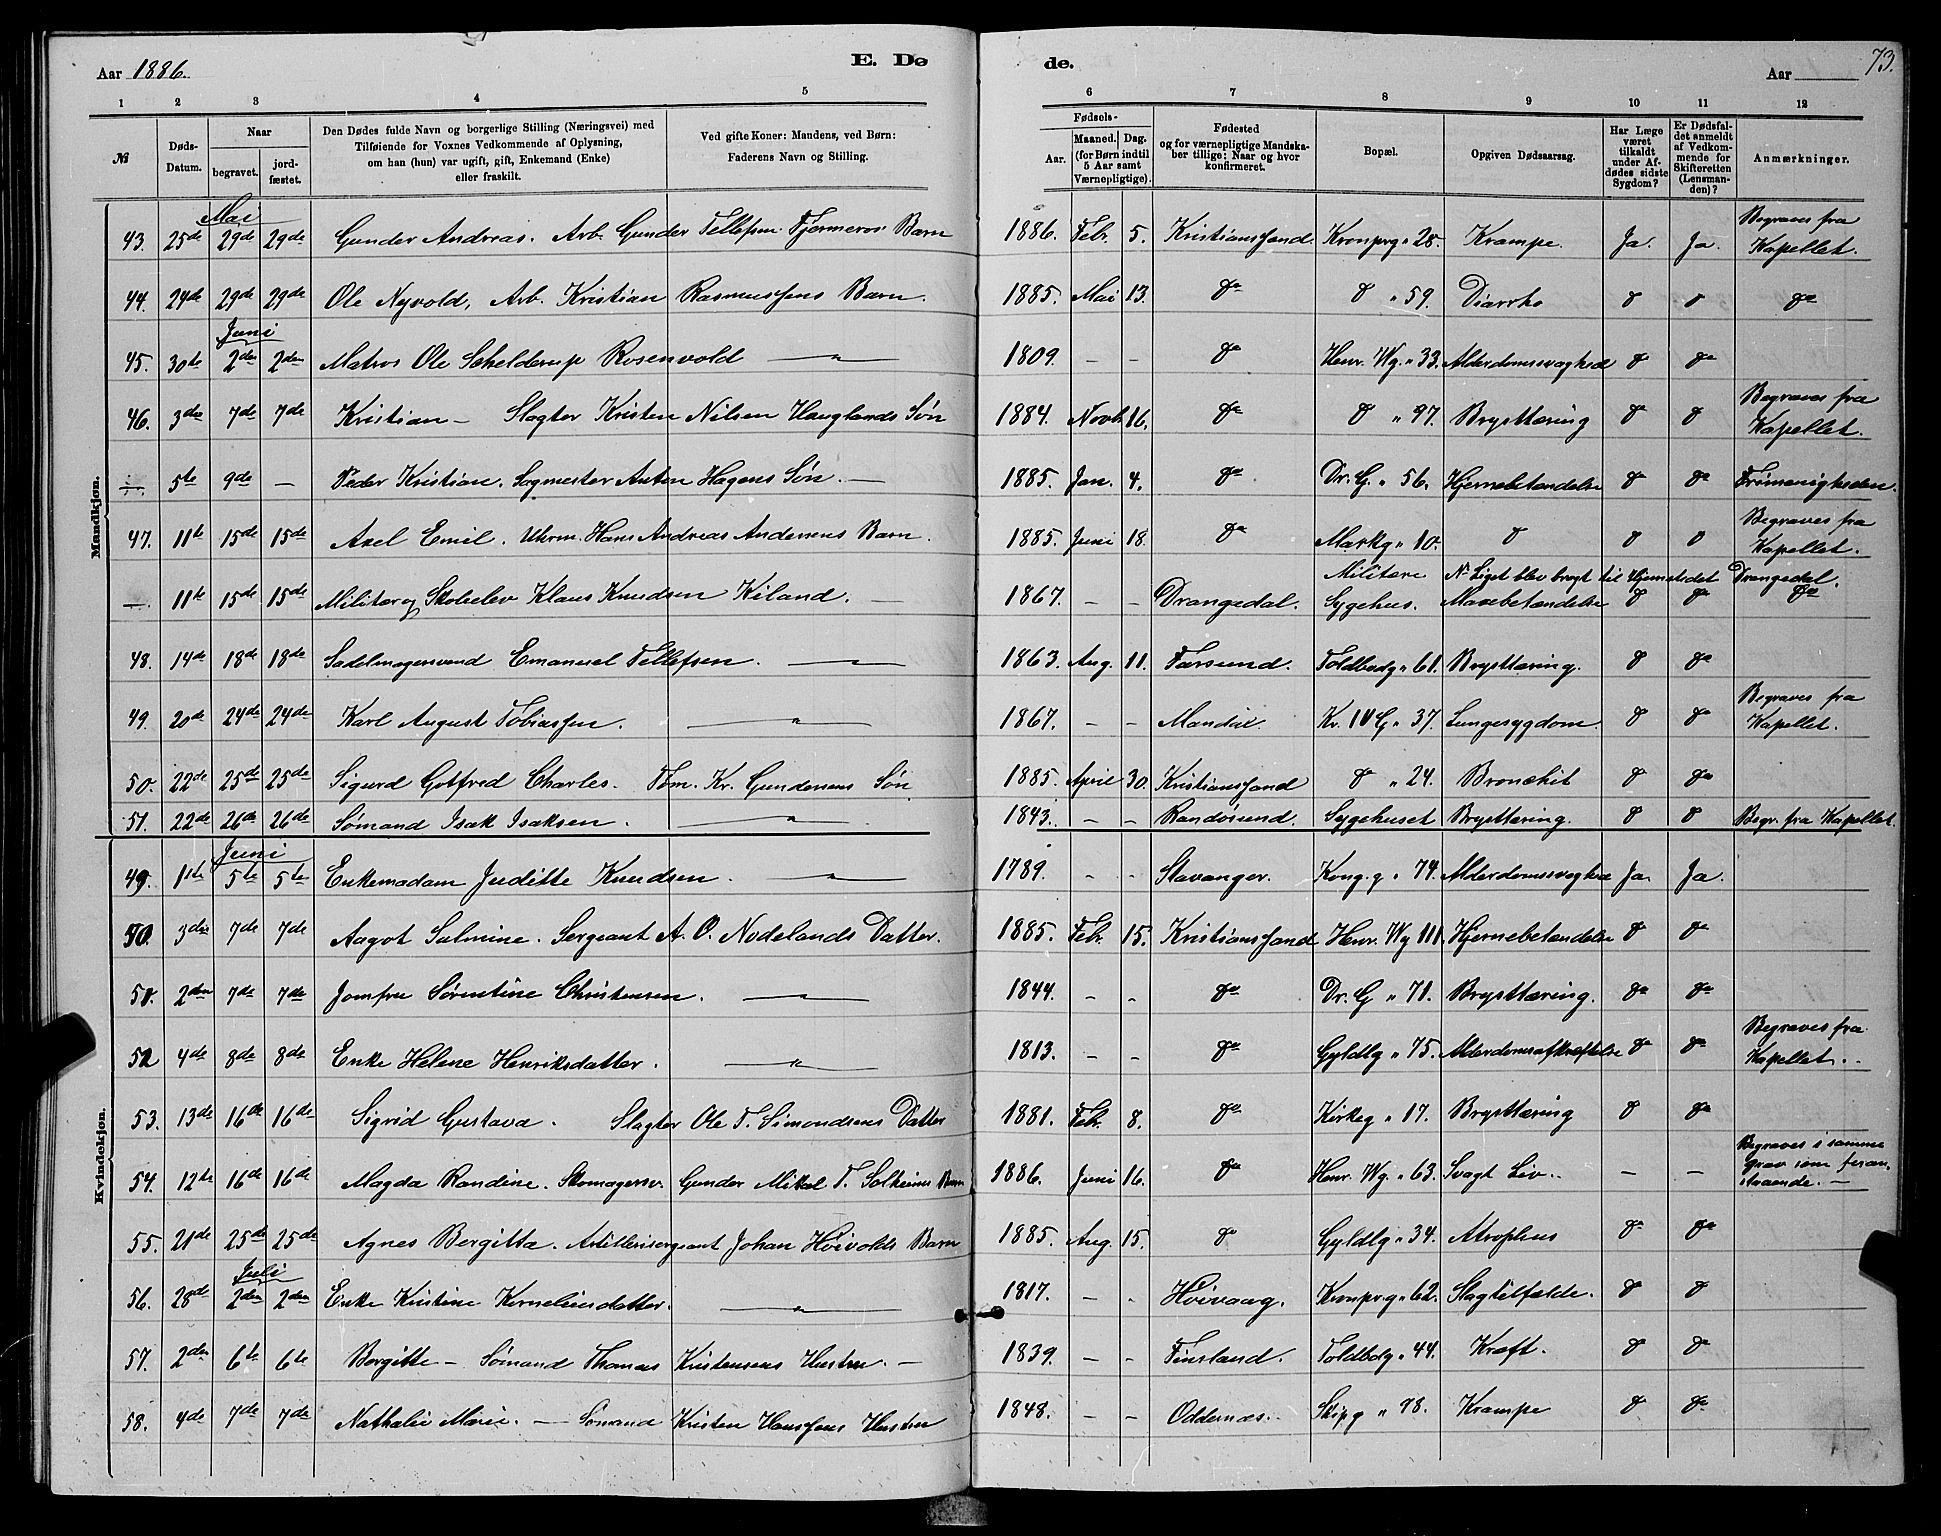 Aar 1886. E. Dø de. Aar 73.
1 2 3 4 5 6 7 8 9 10 11 12
№ Døds-Datum. Naar begravet. jordfæstet. Den Dødes fulde Navn og borgerlige Stilling (Næringsvei) med Tilføiende for Voxnes Vedkommende af Oplysning, om han (hun) var ugift, gift, Enkemand (Enke) eller fraskilt. Ved gifte Koner: Mandens, ved Børn: Faderens Navn og Stilling. Fødsels- Aar. Maaned. Dag. (for Børn indtil 5 Aar samt Værnepligtige). Fødested og for værnepligtige Mandskaber tillige: Naar og hvor konfirmeret. Bopæl. Opgiven Dødsaarsag. Har Læge været tilkaldt under Afdødes sidste Sygdom? Er Dødsfaldet anmeldt af Vedkommende for Skifteretten (Lensmanden)? Anmærkninger.
Mandkjøn.
Mai
43. 25de 29de 29de Gunder Andreas. Arb. Gunder Tellefsen Fjermeros Barn 1886. Febr. 5. Kristianssand Kronprg " 28. Krampe. Ja. Ja. Begraves fra Kapellet.
44. 24de 29de 29de Ole Nyvold, Arb. Kristian Rasmussens Barn. 1885. Mai 13. do d " 59. Diarrhe d d do
Juni
45. 30te 2den 2den Matros Ole Schelderup Rosenvold — " — 1809. – – do Henr. Wg. " 33. Alderdomssvaghed d do
46. 3die 7de 7de Kristian – Slagter Kristen Nilsen Hauglands Søn 1884. Novbr. 16. do d " 97. Brysttæring d d Begraves fra Kapellet.
÷. 5te 9de – Peder Kristian. Sagmester Anton Hagens Søn. — 1885. Jan. 4. do Dr. G. " 56. Hjernebetændelse d do Frimenigheden.
47. 11te 15de 15de Axel Emil. Uhrm. Hans Andreas Andersens Barn. 1885. Juni 18. do Markg " 10. d d d Begraves fra Kapellet.
—. 11te 15de 15de Militær og Skoelev Klaus Knudsen Kiland. — 1867. – – Drangedal. Militære Sygehus. Mavebetændelse d do do
Liget blev bragt til Hjemstedet Drangedal.
48. 14de 18de 18de Sadelmagersvend Emanuel Tellefsen. — 1863. Aug. 11. Farsund. Toldbodg " 61. Brysttæring. d do
49. 20de 24de 24de Karl August Tobiassen. — " — 1867. – – Mandal Kr. IV G " 37. Lungesygdom d do Begraves fra Kapellet.
50. 22de 25de 25de Sigurd Gotfred Charles. Tøm. Kr. Gundersens Søn 1885. April 30. Kristianssand d " 24. Bronchit d do
51. 22de 26de 26de Sømand Isak Isaksen. — " — 1843. – – Randøsund. Sygehuset Brysttæring. d d Begr. fra Kapellet.
Kvindekjøn.
Juni
49. 1ste 5te 5te Enkemadam Juditte Knudsen. — " — 1789. – – Stavanger. Kong. g " 74. Alderdomssvaghed Ja. Ja.
50. 3die 7de 7de Aagot Salmine. Sergeant A. O. Nodelands Datter. 1885. Febr. 15. Kristianssand Henr. Wg 111. Hjernebetændelse d do
51. 2den 7de 7de Jomfru Sørentine Christensen. — " — 1844. – – do Dr. G " 71. Brysttæring. do do
52 4de 8de 8de Enke Helene Henriksdatter. — " — 1813. – – do Gyldlg " 75. Alderdomsafkræftelse do do Begraves fra Kapellet.
53. 13de 16de 16de Sigrid Gustava. Slagter Ole T. Simondsens Datter 1881. Febr. 8. do Kirkeg " 17. Brysttæring d do
54. 12te 16de 16de Magda Randine. Skomagersv. Gunder Mikal T. Solheims Barn 1886. Juni 16. do Henr. Wg. " 63. Svagt Liv. – – Begraves i samme Grav som foranstaaende. –
55. 21de 25de 25de Agnes Bergitta. Artillerisergeant Johan Höivolds Barn 1885. Aug. 15. do Gyldlg " 34. Atrophus do do
Juli
56. 28de 2den 2den Enke Kristine Korneliusdatter. — " — 1817. – – Höivaag. Kronpr. g " 62. Slagtilfælde. d d
57. 2den 6te 6te Borgitte – Sømand Thomas Kristensens Hustru. – 1839. – – Finsland. Toldbdg " 44. Kræft. d d
58. 4de 7de 7de Nathalie Marie. — Sømand Kristen Hanssens Hustru 1848. – – Oddernæs. Skipg " 98. Krampe d do